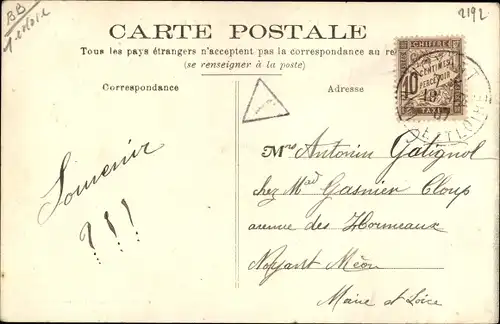 BB
2192
CARTE POSTALE
Tous les pays étrangers n'acceptent pas la correspondance au
(se renseigner à la poste)
Correspondance
Adresse
CHIFFRE
10 CENTIMES A
PERCEVOIR
TAXE
ET LOIRE
Souvenir
???
Mrs Antonin Gatignol
chez Mad Gasnier Cloup
avenue des Hormeaux
Noyant Méon
Maine et Loire